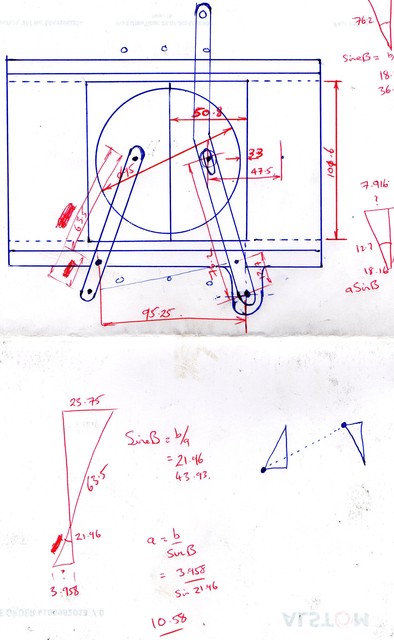 76.2
Sine B = b
18.
36.
50.8
33
47.5
95
101.6
63.5
76.2
12.7
7.916
?
12.7
18.16
a Sin B
95.25
23.75
63.5
21.46
3.958
Sine B = b/a
= 21.46
43.93.
a = b
Sin B
= 3.958
sin 21.46
10.58
ALSTOM